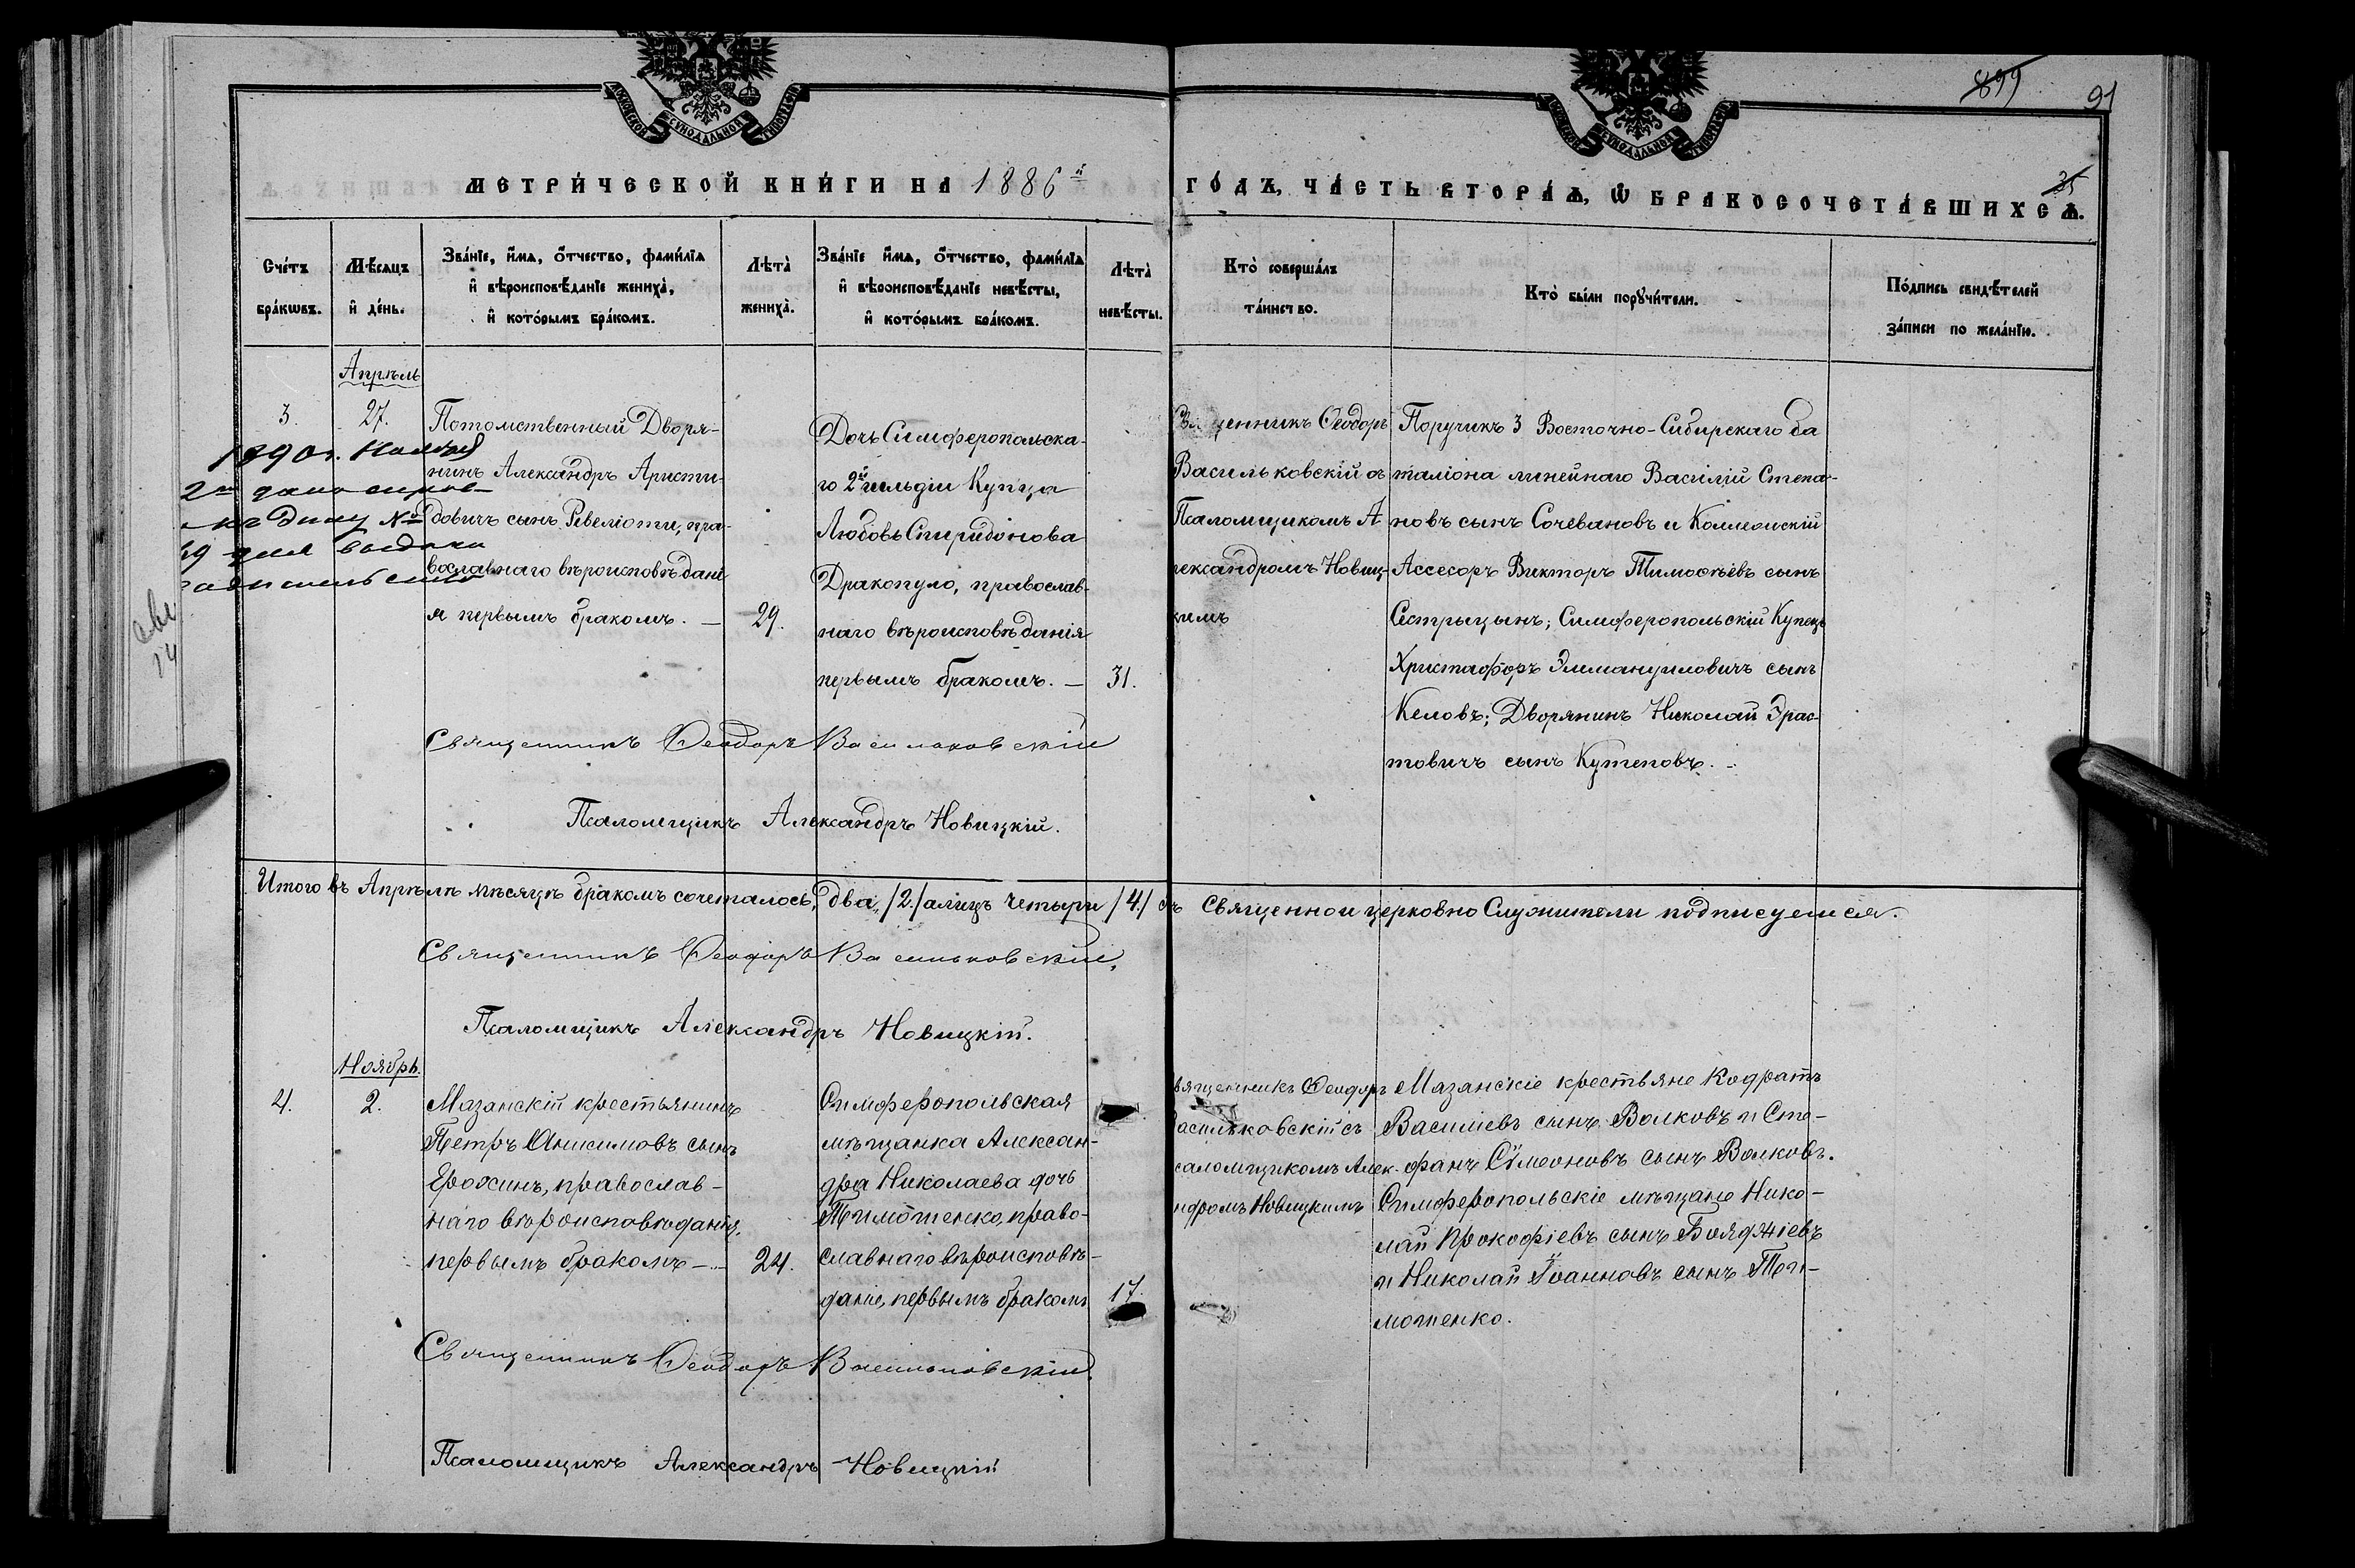 899
91
35
МЕТРИ́ЧЕСКОЙ КНИ́ГИ НА 1886й ГО́ДЪ, ЧА́СТЬ ВТОРА́Ѧ, Ѽ БРАКОСОЧЕТА́ВШИХСѦ.
Сче́тъ
бра́кѡвъ.
Мѣ́сѧцъ
и҆ де́нь.
Зва́нїе, и҆́мѧ, ѻ҆́тчество, фами́лїѧ
и҆ вѣроисповѣ́данїе жениха̀,
и҆ кото́рымъ бра́комъ.
Лѣта̀
жениха̀.
Зва́нїе и҆́мѧ, ѻ҆́тчество, фами́лїѧ
и҆ вѣроисповѣ́данїе невѣ́сты,
и҆ кото́рымъ бра́комъ.
Лѣта̀
невѣ́сты.
Кто̀ соверша́лъ
та́инство.
Кто̀ бы́ли порꙋчи́тели.
По́дпись свидѣ́телей
за́писи по жела́нїю.
Апрѣль
3.
27.
1890 г. Ноября
2го дано
№
19 для выдачи
Потомственный Дворя-
нинъ Александръ Аристи-
довичъ сынъ Ревеліоти, пра-
вославнаго вѣроисповѣдані
я первымъ бракомъ. —
29.
Дочь Симферопольска-
го 2й гильдіи Купца
Любовь Спиридонова
Дракопуло, православ-
наго вѣроисповѣданія
первымъ бракомъ. —
31.
Священникъ Ѳеодоръ
Васильковскій съ
Псаломщикомъ А
лександромъ Новиц-
кимъ
Поручикъ 3 Восточно-Сибирскаго ба
таліона линейнаго Василій Степа-
новъ сынъ Сочевановъ и Коллежскій
Ассесоръ Викторъ Тимоѳѣевъ сынъ
Сестрыцынъ; Симферопольскій Купецъ
Христафоръ Эммануиловичъ сынъ
Келовъ; Дворянинъ Николай Эрас-
товичъ сынъ Кутеповъ. –
Священникъ Ѳеодоръ Васильковскій
Псаломщикъ Александръ Новицкій.
Итого въ Апрѣлѣ мѣсяцѣ бракомъ сочеталось, два„ /2./ а лицъ четыри /4/ Священно и церковно Служители подписуемся.
Священникъ Ѳеодоръ Васильковскій,
Псаломщикъ Александръ Новицкій.
Ноябрь.
4.
2.
Мазанскій крестьянинъ
Петръ Анисимовъ сынъ
Ерохинъ, православ-
наго вѣроисповѣданія,
первымъ бракомъ —
24.
Симферопольская
мѣщанка Алексан-
дра Николаева дочь
Тимошенко, право-
славнаго вѣроисповѣ-
даніе, первымъ бракомъ
17.
вященникъ Ѳеодоръ
асильковскій съ
саломщикомъ Алек-
ндромъ Новицкимъ
Мазанскіе крестьяне Кодратъ
Василіевъ сынъ Волковъ и Сте-
фанъ Сѵмеоновъ сынъ Волковъ.
Симферопольскіе мѣщане Нико-
лай Прокофіевъ сынъ Бояджіевъ
и Николай Іоанновъ сынъ Ти-
мошенко.
Священникъ Ѳеодоръ Васильковскій.
Псаломщикъ Александръ Новицкій